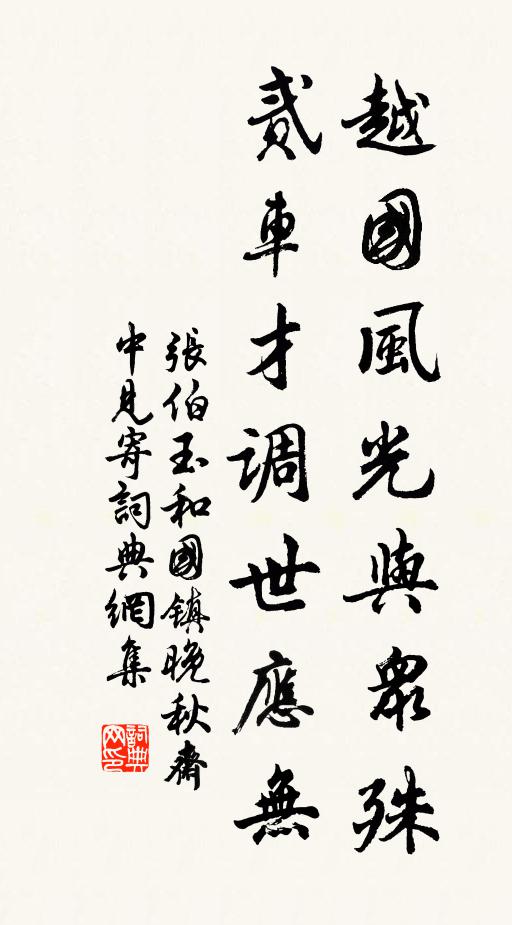 越國風光與衆殊
貳車才調世應無
張伯玉和國鎮晚秋齋
中見寄詞典網集
詞典
网印